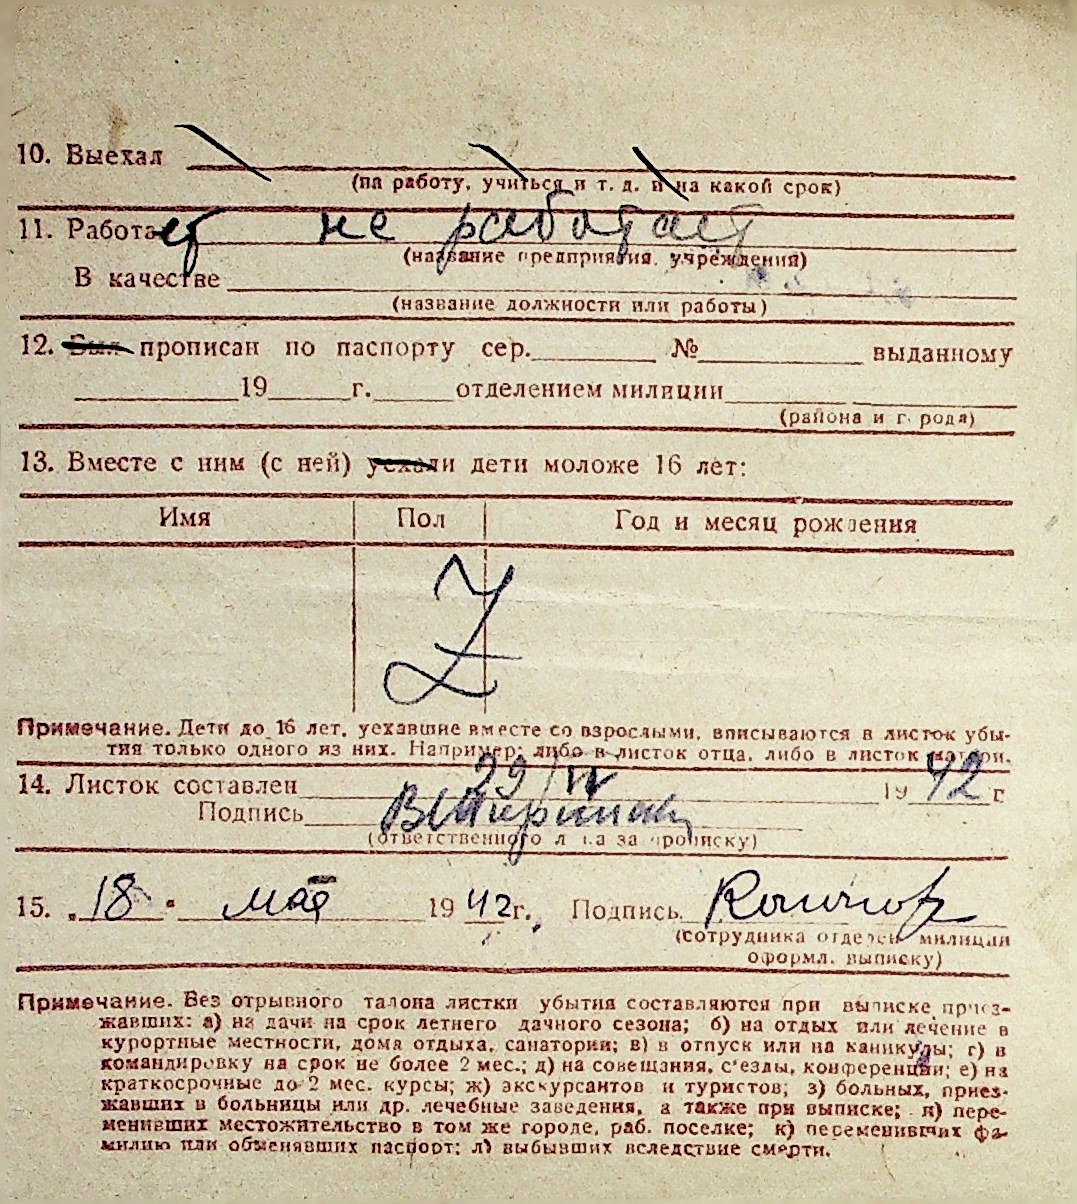 10. Выехал
(на работу, учиться и т. д. и на какой срок)
11. Работает не работает
(название предприятия, учреждения)
В качестве
(название должности или работы)
12. Был прописан по паспорту сер. № выданному
19 г. отделением милиции
(района и города)
13. Вместе с ним (с ней) уехали дети моложе 16 лет:
Имя Пол Год и месяц рождения
Z
Примечание. Дети до 16 лет, уехавшие вместе со взрослыми, вписываются в листок убы-
тия только одного из них. Например: либо в листок отца, либо в листок матери.
14. Листок составлен 29/IV 1942 г
Подпись
(ответственного лица за прописку)
15. "18" мая 1942 г. Подпись
(сотрудника отделен. милиции
оформл. выписку)
Примечание. Без отрывного талона листки убытия составляются при выписке приез-
жавших: а) на дачи на срок летнего дачного сезона; б) на отдых или лечение в
курортные местности, дома отдыха, санатории; в) в отпуск или на каникулы; г) в
командировку на срок не более 2 мес.; д) на совещания, с'езды, конференции; е) на
краткосрочные до 2 мес. курсы; ж) экскурсантов и туристов; з) больных, приез-
жавших в больницы или др. лечебные заведения, а также при выписке; и) пере-
менивших местожительство в том же городе, раб. поселке; к) переменивших фа-
милию или обменявших паспорт; л) выбывших вследствие смерти.